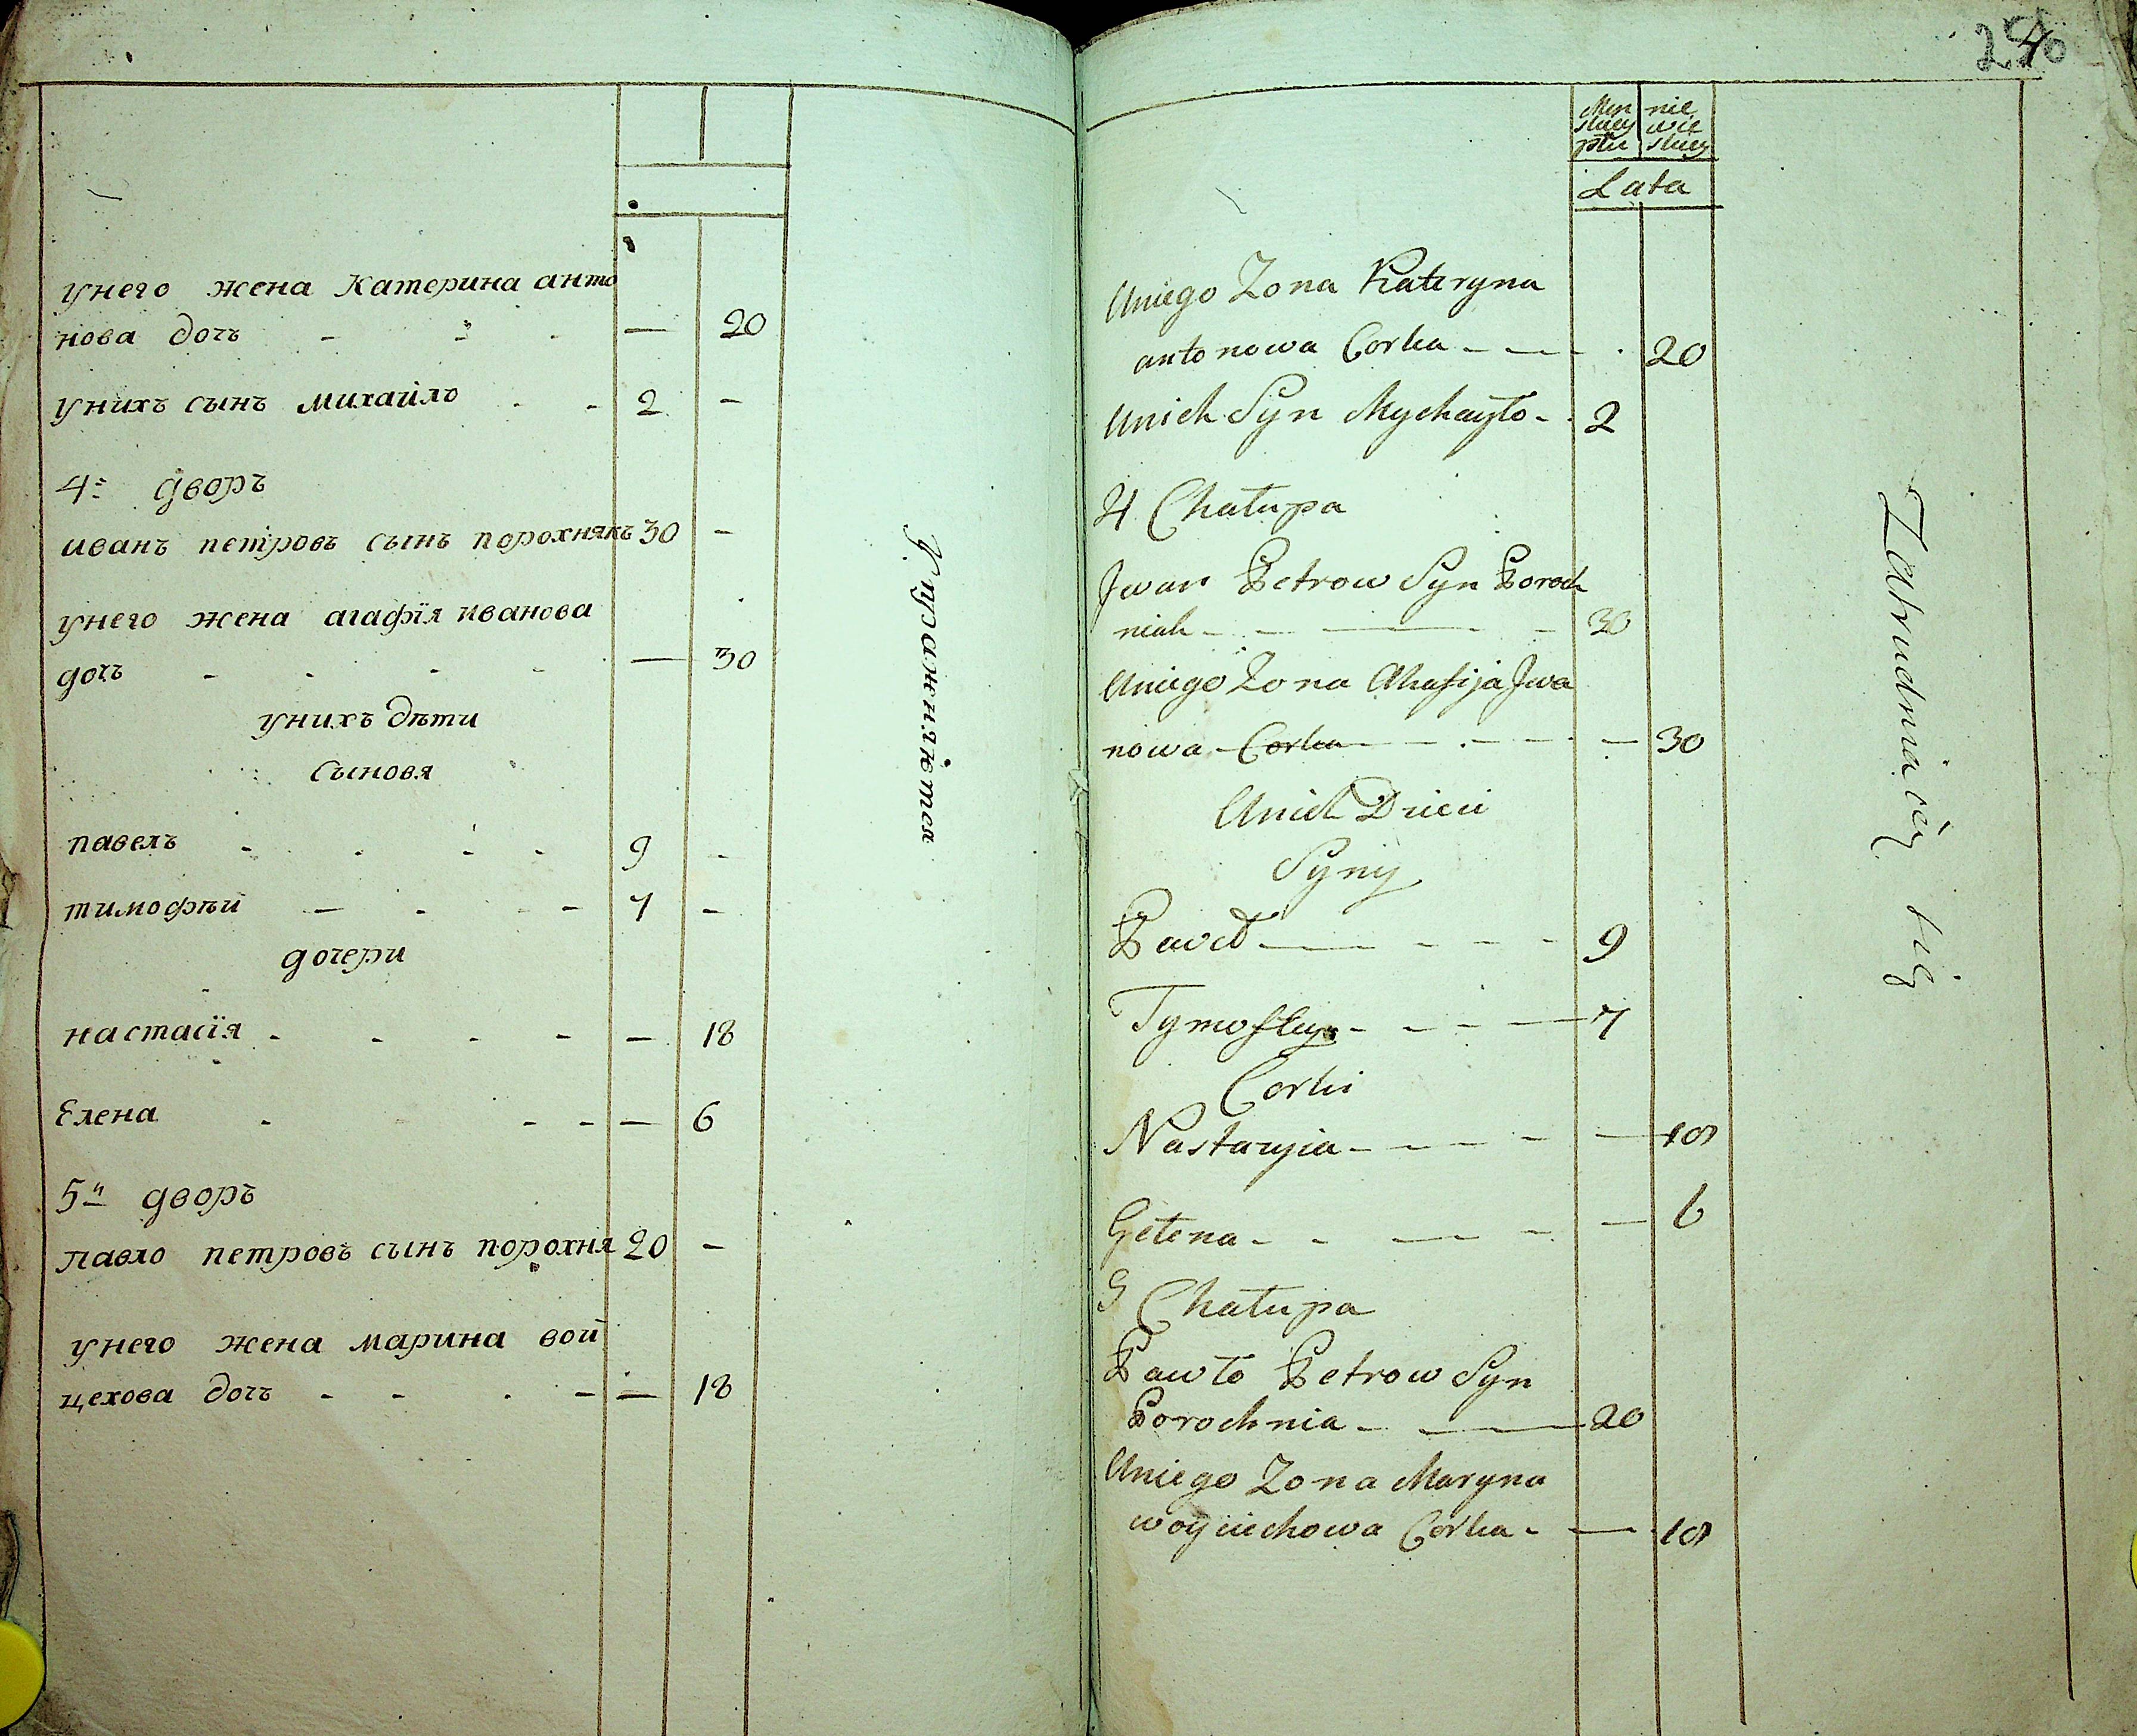 унего жена Катерина анто
нова дочь - - - — 20
унихъ сынъ михайло - - 2 -
4й дворъ
иванъ петровъ сынъ порохнякъ 30 -
унего жена агафїя иванова
дочь - - - - — 30
унихъ дѣти
сыновя
павелъ - - - - 9 -
тимофѣй — - - 7 -
дочери
настасїя - - - - — 18
Елена - - - — 6
5й дворъ
павло петровъ сынъ порохня 20 -
унего жена марина вой
цехова дочь - - - - — 18
Упражняются
Men
skiey
płci
nie
wie
skiey
Lata
Uniego Zona Kateryna
antonowa Corka - — - 20
Unich Syn Mychayło - 2
4 Chałupa
Jwan Petrow Syn Poroch
niak - - — - 30
Uniego Zona Ahafija Jwa
nowa Corka - - - - — 30
Unich Dzieci
Syny
Paweł — - - - 9
Tymofiey - - - — 7
Corki
Nastazyia - - - - — 18
Hełena - - — - — 6
5 Chałupa
Pawło Petrow Syn
Porochnia - — 20
Uniego Zona Maryna
woyciechowa Corka - — 18
Zatrudniaią się